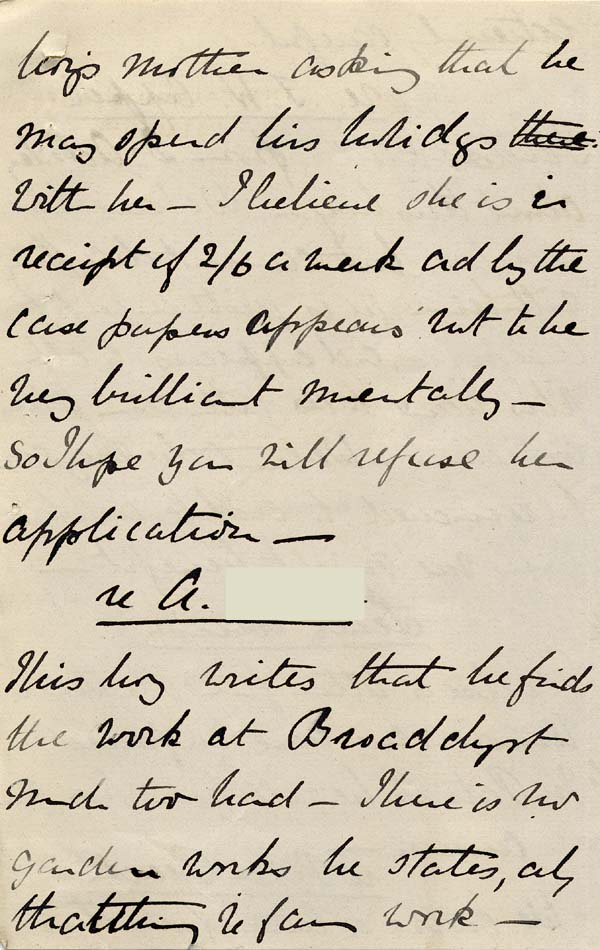 boy's mother asking that he
may spend his holidays there
with her — I believe she is in
receipt of 2/6 a week and by the
case papers appears not to be
very brilliant mentally —
So I hope you will refuse her
application —
re A.
This boy writes that he finds
the work at Broadclyst
much too hard — There is no
garden works he states, only
farm work —